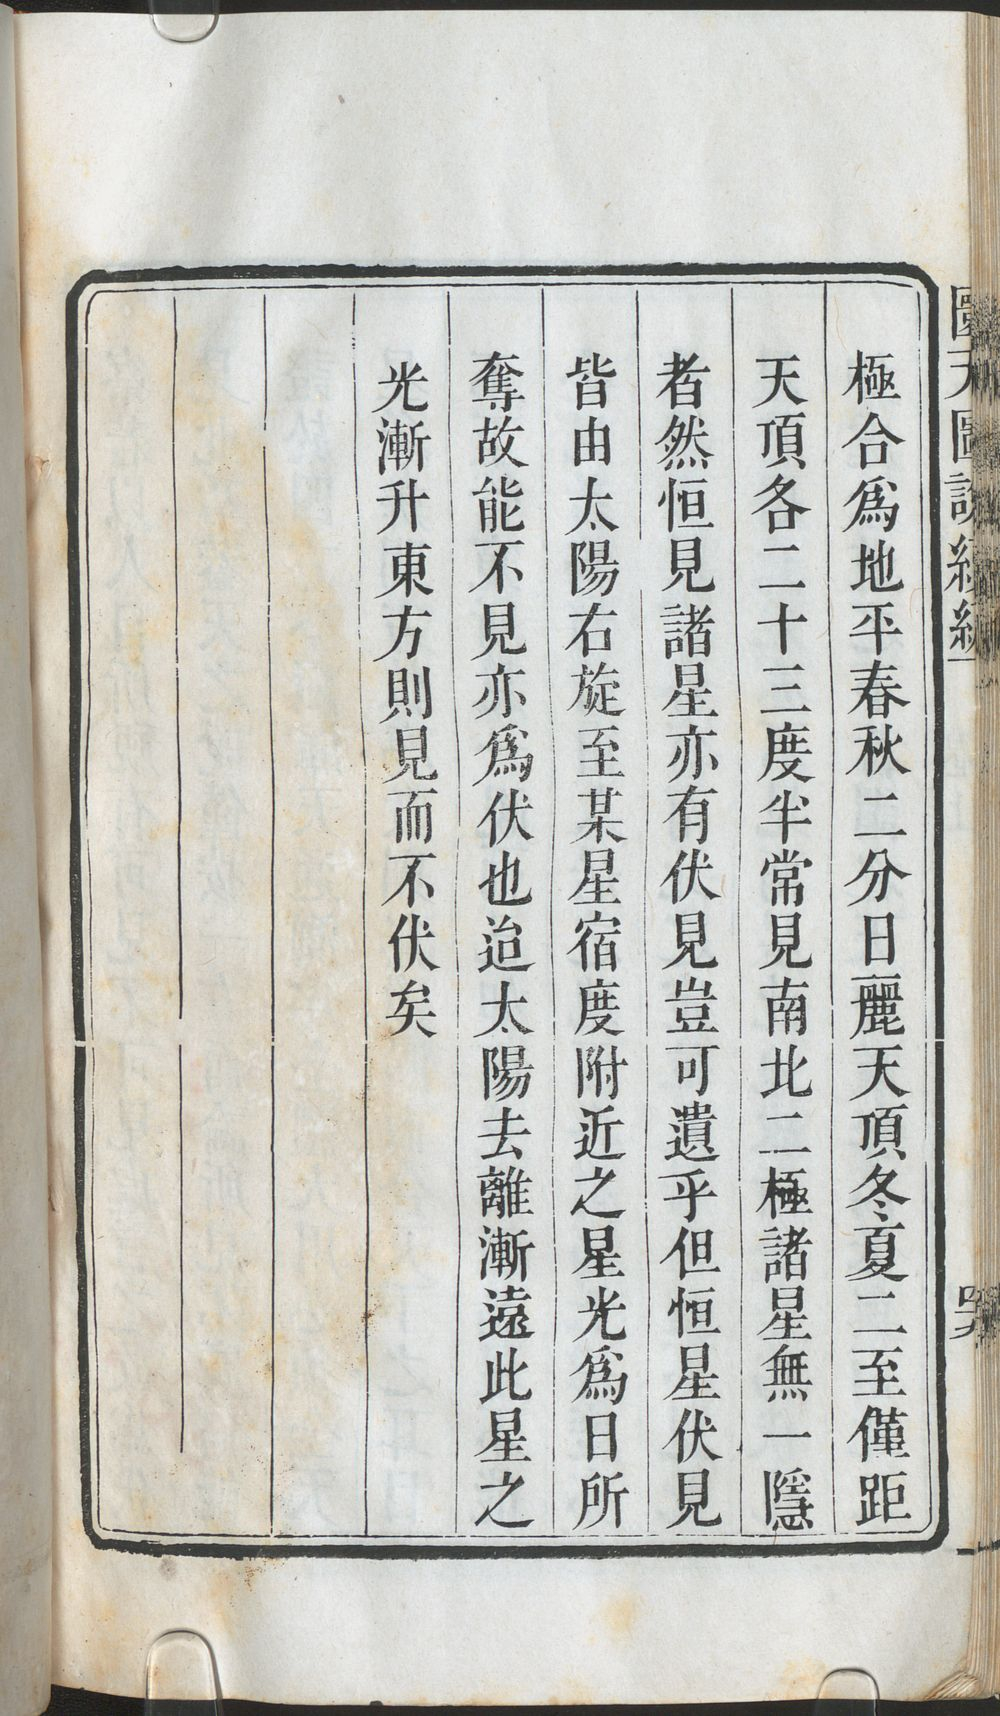 極合爲地平春秋二分日麗天頂冬夏二至僅距
天頂各二十三度半常見南北二極諸星無一隱
者然恒見諸星亦有伏見豈可遺乎但恒星伏見
皆由太陽右旋至某星宿度附近之星光爲日所
奪故能不見亦爲伏也迨太陽去離漸遠此星之
光漸升東方則見而不伏矣
圜天圖說續編